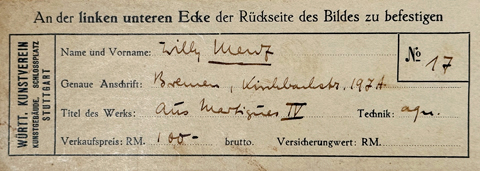 An der linken unteren Ecke der Rückseite des Bildes zu befestigen
WÜRTT. KUNSTVEREIN
KUNSTGEBÄUDE, SCHLOSSPLATZ
STUTTGART
Name und Vorname: Willy Menz
No 17
Genaue Anschrift: Bremen, Kirchbachstr. 197A
Titel des Werks: Aus Martigues IV Technik: aqu.
Verkaufspreis: RM. 100.- brutto. Versicherungswert: RM.